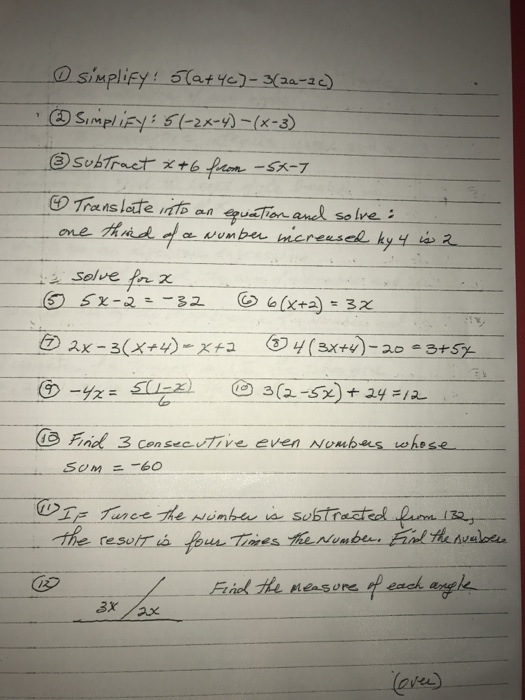 ① Simplify: 5(a+4c)-3(2a-2c)
② Simplify: 5(-2x-4)-(x-3)
③ Subtract x+6 from -5x-7
④ Translate into an equation and solve:
one third of a number increased by 4 is 2
solve for x
⑤ 5x-2=-32 ⑥ 6(x+2)=3x
⑦ 2x-3(x+4)=x+2 ⑧ 4(3x+4)-20=3+5x
⑨ -4x = 5(1-x)/6 ⑩ 3(2-5x)+24=12
⑩ Find 3 consecutive even numbers whose
sum = -60
⑪ If Twice the number is subtracted from 132,
the result is four Times the Number. Find the number
⑫ Find the measure of each angle
3x 2x
(over)